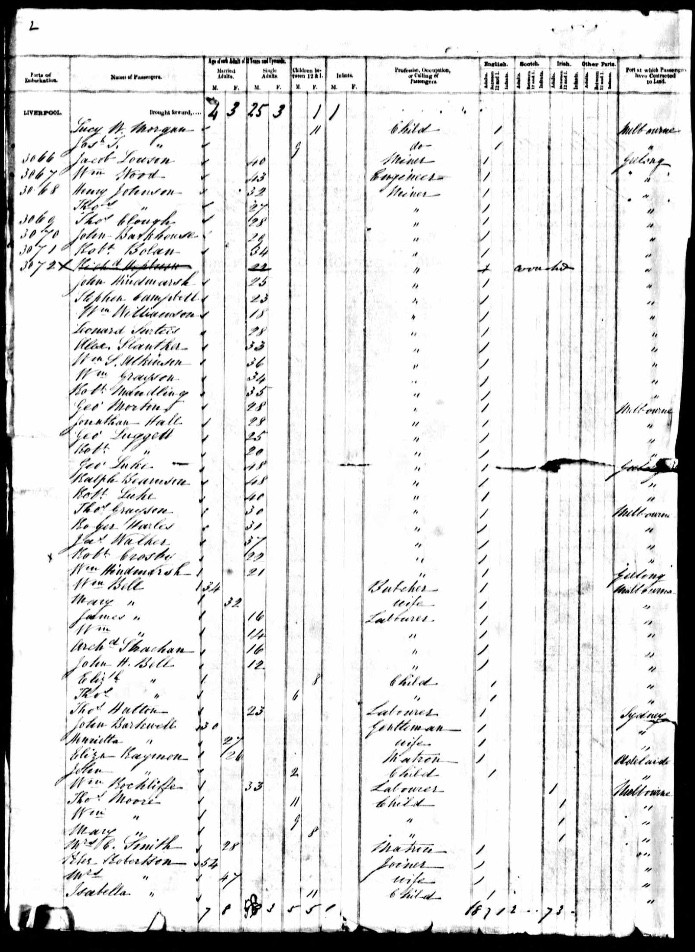 2
Ports of Embarkation. Names of Passengers. Age of each Adult of 12 Years and upwards. Children between 12 & 1. Infants. Profession, Occupation, or Calling of Passengers. English. Scotch. Irish. Other Parts. Port at which Passengers have Contracted to Land.
Married Adults. Single Adults.
M. F. M. F. M. F. M. F.
LIVERPOOL. Brought forward, .... 4 3 25 3 1 1
Lucy W. Morgan 11 Child 1 Melbourne
Josh. T. " 9 do 1 "
3066 Jacob 40 Miner 1 Geelong
3067 Wm Wood 43 Engineer 1 "
3068 Henry Johnson 32 Miner 1 "
Thos " 27 " 1 "
3069 Thos Clough 28 " 1 "
3070 John 29 " 1 "
3071 Robt Bolan 34 " 1 "
3072 x Richd Hepburn 22 "
John Hindmarsh 25 " 1 "
Stephen Campbell 23 " 1 "
Wm Williamson 18 " 1 "
Leonard 28 " 1 "
Alex. 33 " 1 "
Wm S. Atkinson 36 " 1 "
Wm Grayson 34 " 1 "
Robt Mandling 35 " 1 "
Geo 28 " 1 Melbourne
Jonathan Hall 28 " 1 "
Geo Luggett 25 " 1 "
Robt " 20 " 1 "
Geo Luke 18 " 1
Ralph 48 " 1 "
Robt Luke 40 " 1 "
Thos Grayson 30 " 1 Melbourn
Roger Harles 30 " 1 "
Jas Walker 37 " 1 "
x Robt Crosby 22 " 1 "
Wm Hindmarsh 21 " 1 Geelong
Wm Bell 34 Butcher 1 Melbourne
Mary " 32 wife 1 "
James " 16 Labourer 1 "
Wm " 14 " 1 "
Archd 16 " 1 "
John H. Bell 12 " 1 "
Elizth " 8 Child 1 "
Thos " 6 " 1 "
Thos Hutton 23 Labourer 1 Sydney
John Barkwell 30 Gentleman 1 "
Murietta " 27 wife 1 "
Eliza Raymon 26 Matron 1 Adelaide
John " 2 Child 1 "
Wm Rochliffe 33 Labourer 1 Melbourne
Thos Moore 11 Child 1 "
Wm " 9 " 1 "
Mary " 8 " 1 "
Mrs C. Smith 28 Matron 1 "
Robertson 54 Joiner 1 "
Mrs " 47 wife 1 "
Isabella " 11 Child 1 "
7 8 58 3 5 5 1